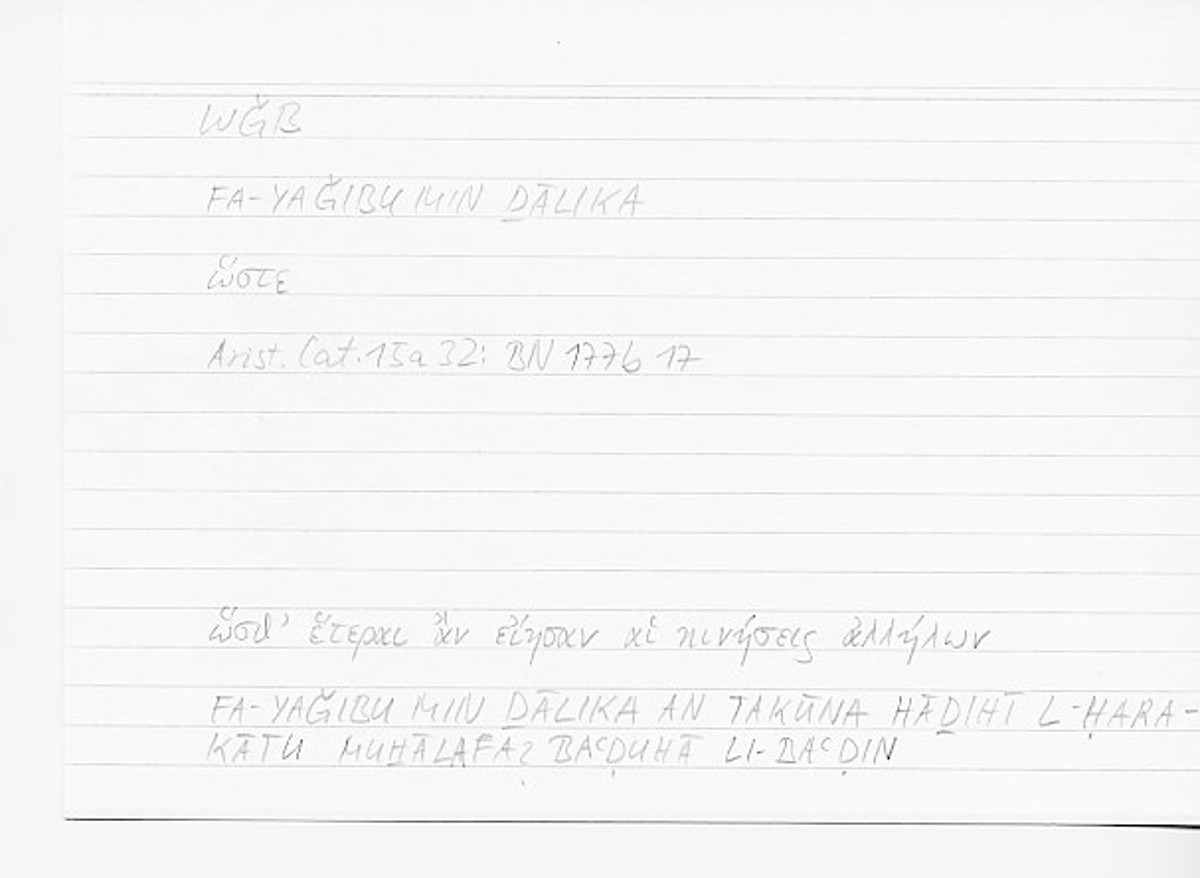 WǦB
FA-YAǦIBU MIN ḎĀLIKA
ὥστε
Arist. Cat. 15a 32: BN 177b 17
ὥσθ' ἕτεραι ἂν εἴησαν αἱ κινήσεις ἀλλήλων
FA-YAǦIBU MIN ḎĀLIKA AN TAKŪNA HĀḎIHĪ L-ḤARA-
KĀTU MUḪĀLAFA BAʿḌUHĀ LI-BAʿḌIN